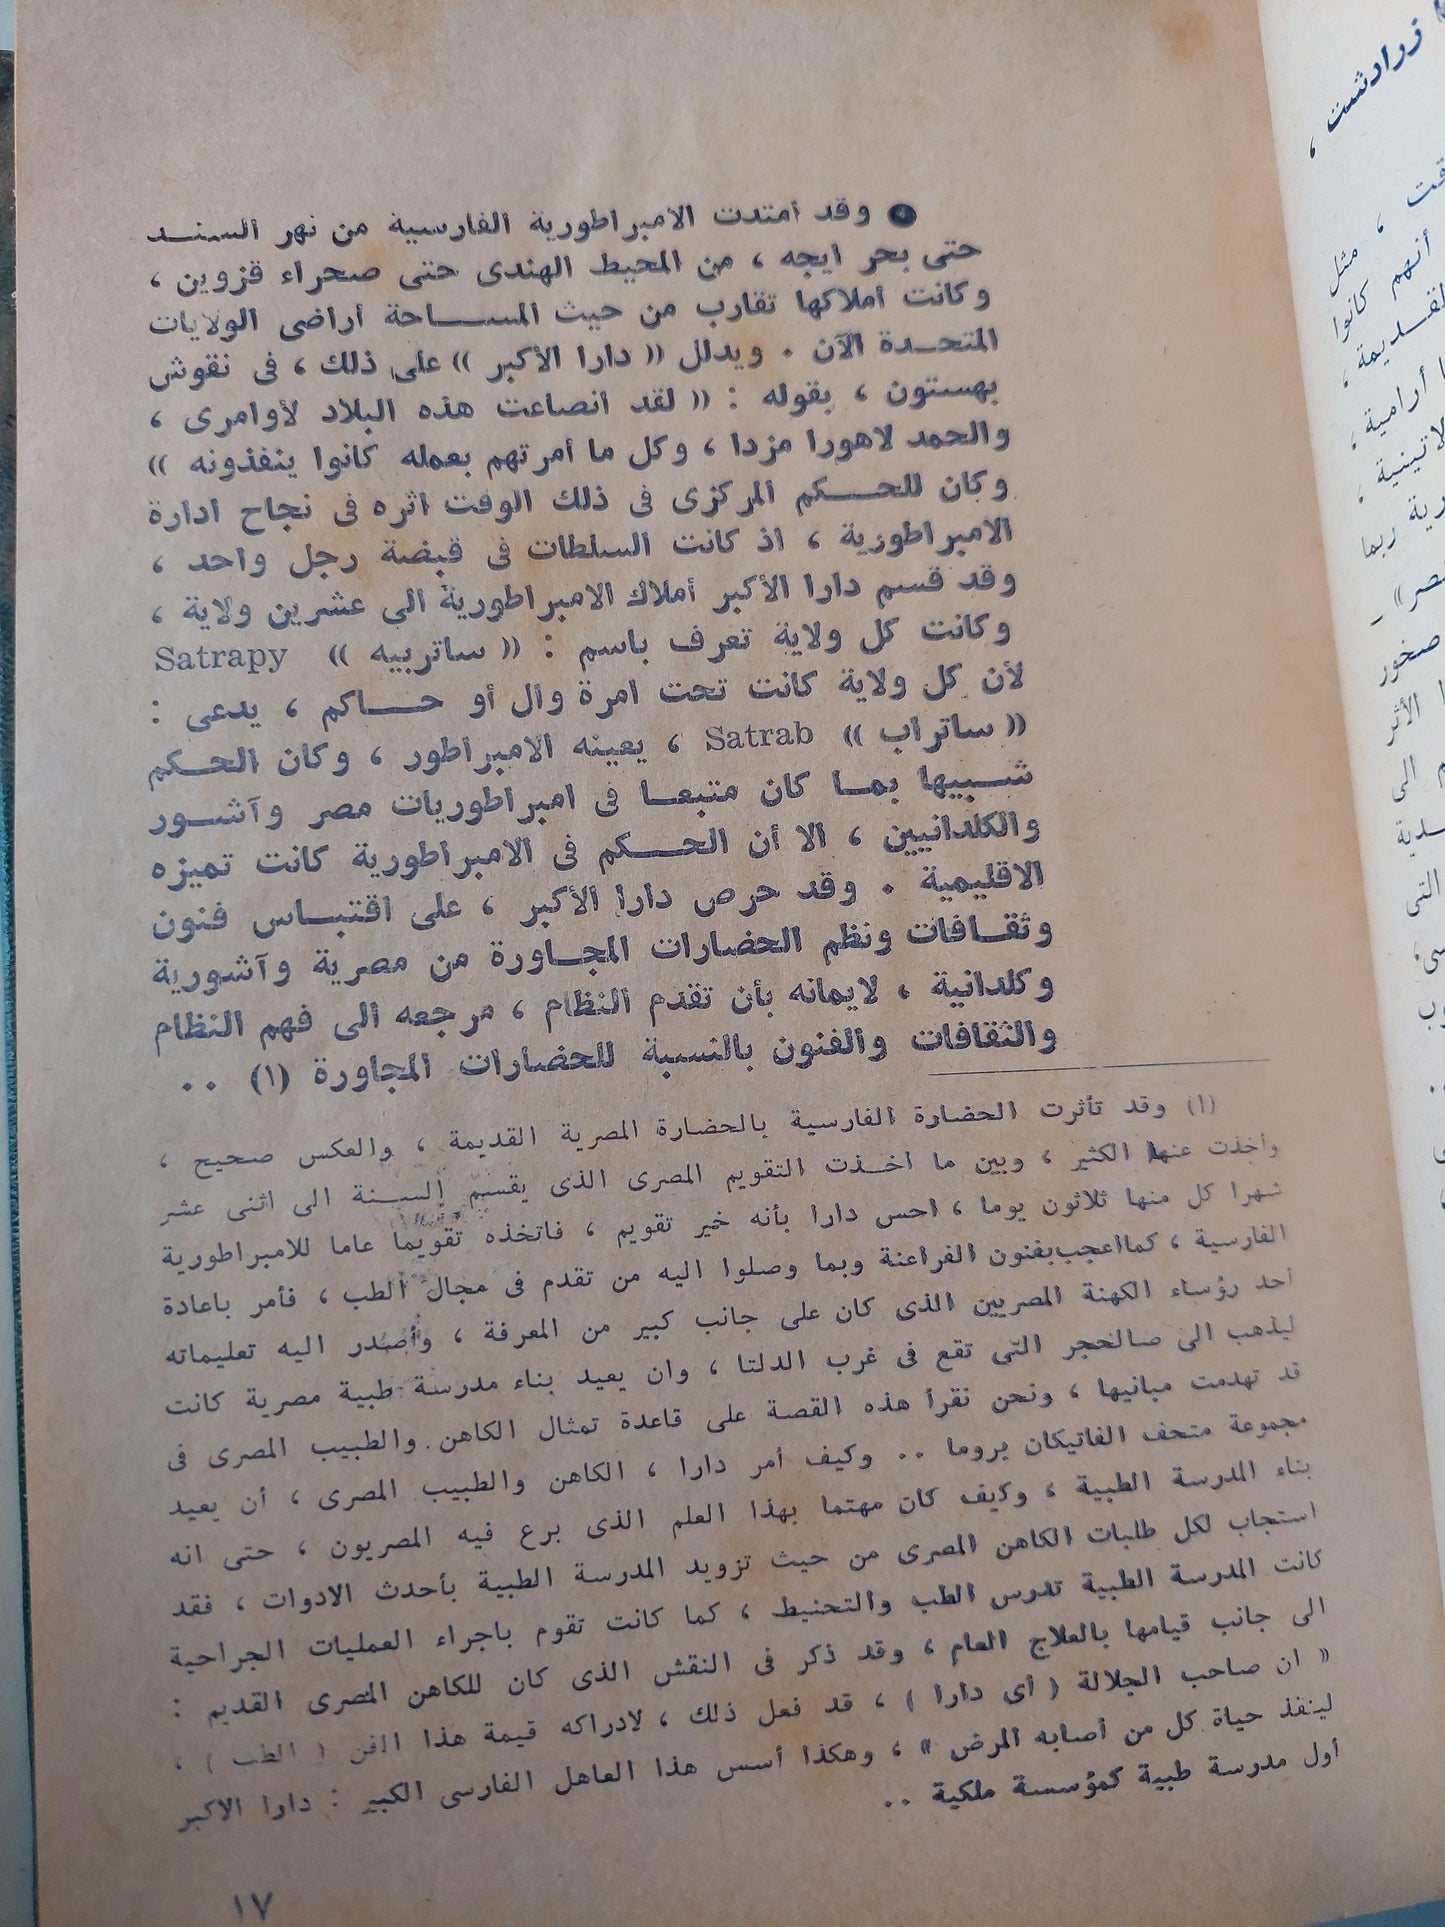 ● وقد امتدت الامبراطورية الفارسية من نهر السند
حتى بحر ايجه ، من المحيط الهندى حتى صحراء قزوين ،
وكانت أملاكها تقارب من حيث المساحة أراضى الولايات
المتحدة الآن . ويدلل (( دارا الأكبر )) على ذلك ، فى نقوش
بهستون ، بقوله : (( لقد انصاعت هذه البلاد لأوامرى ،
والحمد لاهورا مزدا ، وكل ما أمرتهم بعمله كانوا ينفذونه ))
وكان للحكم المركزى فى ذلك الوقت اثره فى نجاح ادارة
الامبراطورية ، اذ كانت السلطات فى قبضة رجل واحد ،
وقد قسم دارا الأكبر أملاك الامبراطورية الى عشرين ولاية ،
وكانت كل ولاية تعرف باسم : (( ساتربيه )) Satrapy
لأن كل ولاية كانت تحت امرة وال أو حاكم ، يدعى :
(( ساتراب )) Satrab ، يعينه الامبراطور ، وكان الحكم
شبيها بما كان متبعا فى امبراطوريات مصر وآشور
والكلدانيين ، الا أن الحكم فى الامبراطورية كانت تميزه
الاقليمية . وقد حرص دارا الأكبر ، على اقتباس فنون
وثقافات ونظم الحضارات المجاورة من مصرية وآشورية
وكلدانية ، لايمانه بأن تقدم النظام ، مرجعه الى فهم النظام
والثقافات والفنون بالنسبة للحضارات المجاورة (١) ..
(١) وقد تأثرت الحضارة الفارسية بالحضارة المصرية القديمة ، والعكس صحيح ،
وأخذت عنها الكثير ، وبين ما اخذت التقويم المصرى الذى يقسم السنة الى اثنى عشر
شهرا كل منها ثلاثون يوما ، احس دارا بأنه خير تقويم ، فاتخذه تقويما عاما للامبراطورية
الفارسية ، كما اعجب بفنون الفراعنة وبما وصلوا اليه من تقدم فى مجال الطب ، فأمر باعادة
احد رؤساء الكهنة المصريين الذى كان على جانب كبير من المعرفة ، وأصدر اليه تعليماته
ليذهب الى صالحجر التى تقع فى غرب الدلتا ، وان يعيد بناء مدرسة طبية مصرية كانت
قد تهدمت مبانيها ، ونحن نقرأ هذه القصة على قاعدة تمثال الكاهن والطبيب المصرى فى
مجموعة متحف الفاتيكان بروما .. وكيف أمر دارا ، الكاهن والطبيب المصرى ، أن يعيد
بناء المدرسة الطبية ، وكيف كان مهتما بهذا العلم الذى برع فيه المصريون ، حتى انه
استجاب لكل طلبات الكاهن المصرى من حيث تزويد المدرسة الطبية بأحدث الادوات ، فقد
كانت المدرسة الطبية تدرس الطب والتحنيط ، كما كانت تقوم باجراء العمليات الجراحية
الى جانب قيامها بالعلاج العام ، وقد ذكر فى النقش الذى كان للكاهن المصرى القديم :
« ان صاحب الجلالة ( أى دارا ) ، قد فعل ذلك ، لادراكه قيمة هذا الفن ( الطب ) ،
لينقذ حياة كل من أصابه المرض » ، وهكذا أسس هذا العاهل الفارسى الكبير : دارا الاكبر
أول مدرسة طبية كمؤسسة ملكية ..
١٧
زرادشت ،
، مثل
أنهم كانوا
أرامية ،
ربما
صخور
الأثر
الى
التى